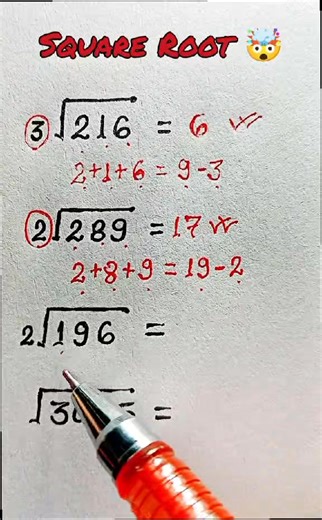 SQUARE ROOT 🤯
3√216 = 6 ✓
2+1+6 = 9-3
2√289 = 17 ✓
2+8+9 = 19-2
2√196 =
√3 =